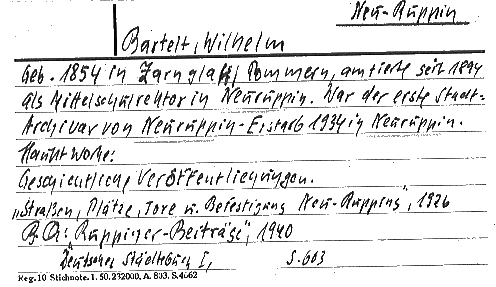 Neu-Ruppin
Bartelt, Wilhelm
Geb. 1854 in Zarnglaff/Pommern, amtierte seit 1894
als Mittelschulrektor in Neuruppin. War der erste Stadt-
Archivar von Neuruppin - Er starb 1934 in Neuruppin.
Hauptwerke:
Geschichtliche Veröffentlichungen.
„Straßen, Plätze, Tore u. Befestigung Neu-Ruppins", 1926
„Ruppiner-Beiträge", 1940
Deutsches Städtebuch I, S. 603
Reg. 10 Stichnote. I. 50. 232000. A. 803. S. 4662